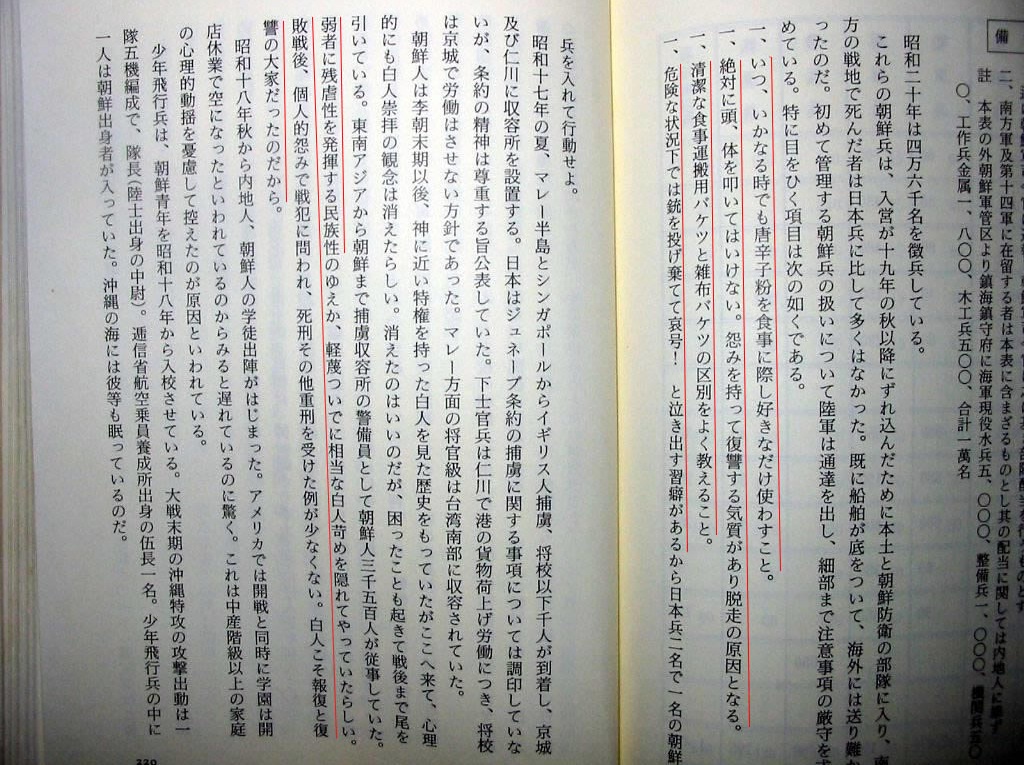 備
二、南方軍及第十四軍に在留する者は本表に含まざるものとし其の配当に関しては内地人に準ず
註　本表の外朝鮮軍管区より鎮海鎮守府に海軍現役水兵五、〇〇〇、整備兵一、〇〇〇、機関兵五〇
〇、工作兵金属一、八〇〇、木工兵五〇〇、合計一萬名
昭和二十年は四万六千名を徴兵している。
これらの朝鮮兵は、入営が十九年の秋以降にずれ込んだために本土と朝鮮防衛の部隊に入り、南
方の戦地で死んだ者は日本兵に比して多くはなかった。既に船舶が底をついて、海外には送り難か
ったのだ。初めて管理する朝鮮兵の扱いについて陸軍は通達を出し、細部まで注意事項の厳守を求
めている。特に目をひく項目は次の如くである。
一、いつ、いかなる時でも唐辛子粉を食事に際し好きなだけ使わすこと。
一、絶対に頭、体を叩いてはいけない。怨みを持って復讐する気質があり脱走の原因となる。
一、清潔な食事運搬用バケツと雑布バケツの区別をよく教えること。
一、危険な状況下では銃を投げ棄てて哀号！　と泣き出す習癖があるから日本兵二名で一名の朝鮮
兵を入れて行動せよ。
昭和十七年の夏、マレー半島とシンガポールからイギリス人捕虜、将校以下千人が到着し、京城
及び仁川に収容所を設置する。日本はジュネーブ条約の捕虜に関する事項については調印していな
いが、条約の精神は尊重する旨公表していた。下士官兵は仁川で港の貨物荷上げ労働につき、将校
は京城で労働はさせない方針であった。マレー方面の将官級は台湾南部に収容されていた。
朝鮮人は李朝末期以後、神に近い特権を持った白人を見た歴史をもっていたがここへ来て、心理
的にも白人崇拝の観念は消えたらしい。消えたのはいいのだが、困ったことも起きて戦後まで尾を
引いている。東南アジアから朝鮮まで捕虜収容所の警備員として朝鮮人三千五百人が従事していた。
弱者に残虐性を発揮する民族性のゆえか、軽蔑ついでに相当な白人苛めを隠れてやっていたらしい。
敗戦後、個人的怨みで戦犯に問われ、死刑その他重刑を受けた例が少なくない。白人こそ報復と復
讐の大家だったのだから。
昭和十八年秋から内地人、朝鮮人の学徒出陣がはじまった。アメリカでは開戦と同時に学園は開
店休業で空になったといわれているのからみると遅れているのに驚く。これは中産階級以上の家庭
の心理的動揺を憂慮して控えたのが原因といわれている。
少年飛行兵は、朝鮮青年を昭和十八年から入校させている。大戦末期の沖縄特攻の攻撃出動は一
隊五機編成で、隊長（陸士出身の中尉）。逓信省航空乗員養成所出身の伍長一名。少年飛行兵の中に
一人は朝鮮出身者が入っていた。沖縄の海には彼等も眠っているのだ。